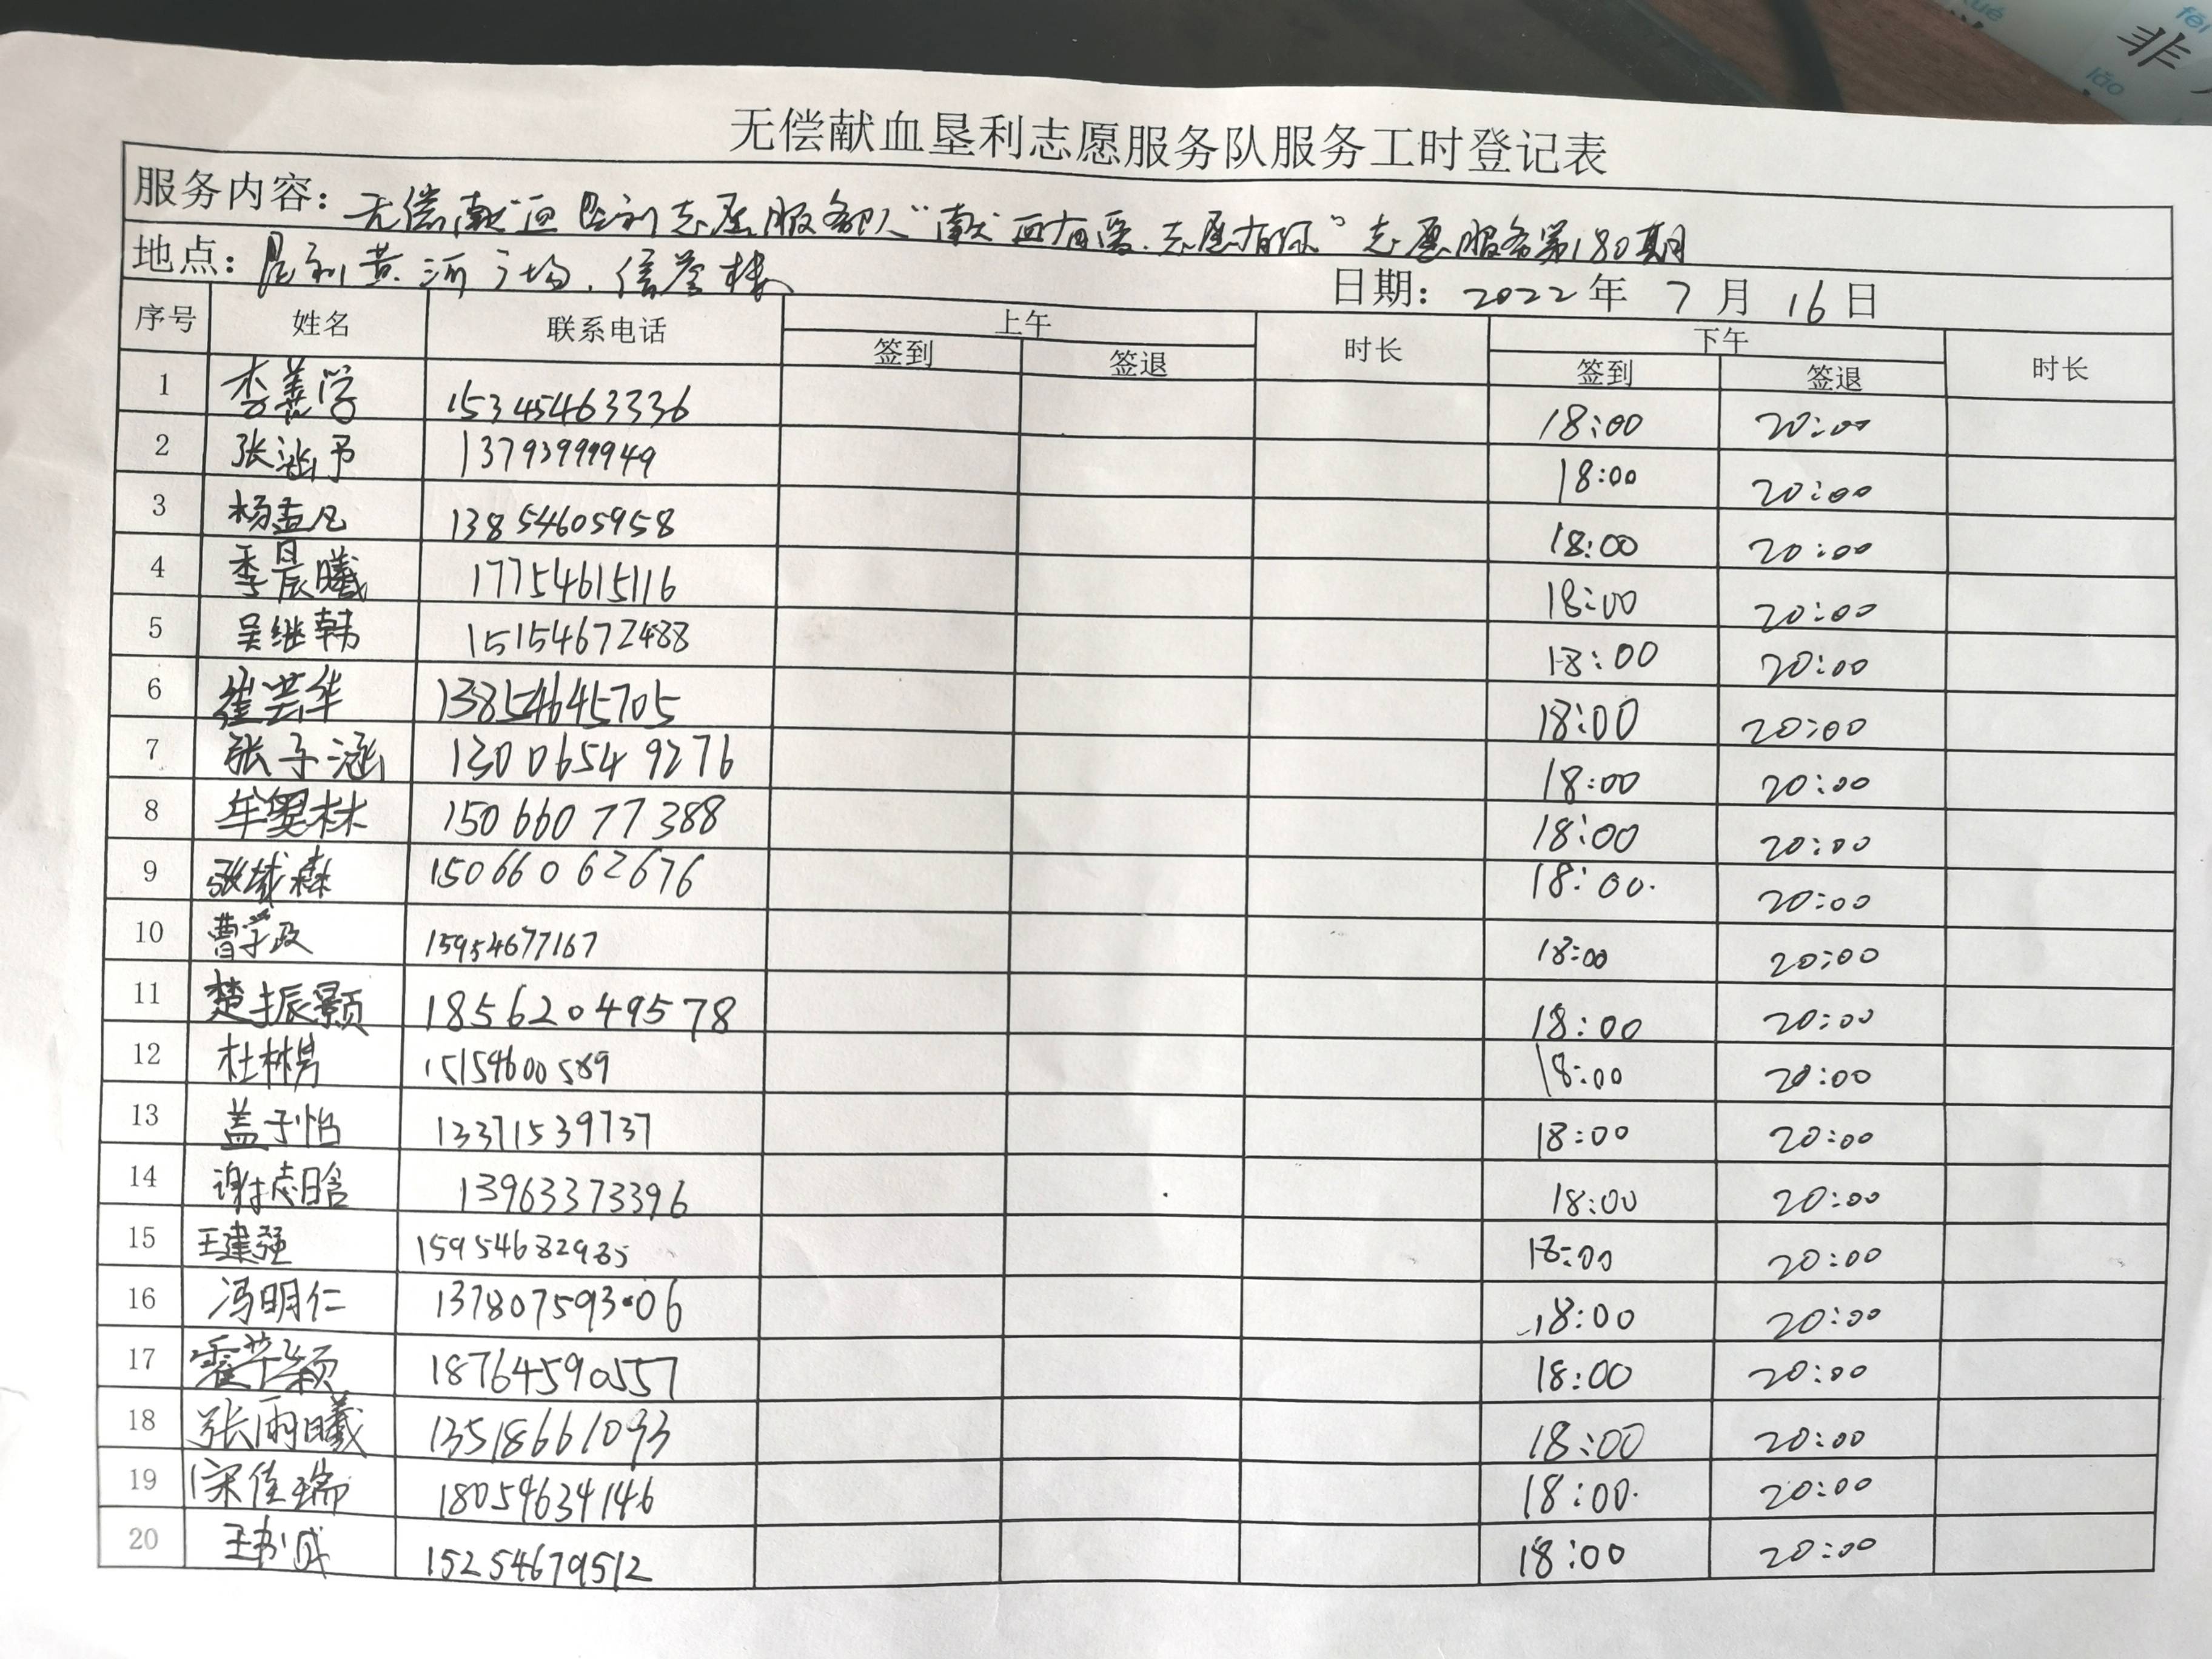 无偿献血垦利志愿服务队服务工时登记表
服务内容：无偿献血垦利志愿服务队“献血有爱.志愿有你”志愿服务第180期
地点：垦利黄河广场.信誉楼 日期：2022年7月16日
序号 姓名 联系电话 上午 时长 下午 时长
签到 签退 签到 签退
1 李善学 15345463336 18:00 20:00
2 张涵予 13793999949 18:00 20:00
3 杨孟凡 13854605958 18:00 20:00
4 季晨曦 17754615116 18:00 20:00
5 吴继韩 15154672488 18:00 20:00
6 崔芸华 13854645705 18:00 20:00
7 张子涵 13006549276 18:00 20:00
8 牟奕林 15066077388 18:00 20:00
9 张城森 15066062676 18:00 20:00
10 曹学政 15954677167 18:00 20:00
11 楚振颢 18562049578 18:00 20:00
12 杜林男 15154600589 18:00 20:00
13 盖子怡 13371539737 18:00 20:00
14 谢志晗 13963373396 18:00 20:00
15 王建强 15954682985 18:00 20:00
16 冯明仁 13780759306 18:00 20:00
17 霍芊颖 18764590557 18:00 20:00
18 张雨曦 13518661093 18:00 20:00
19 宋佳瑞 18054634146 18:00 20:00
20 王 15254679512 18:00 20:00
fēi
非
lǎo